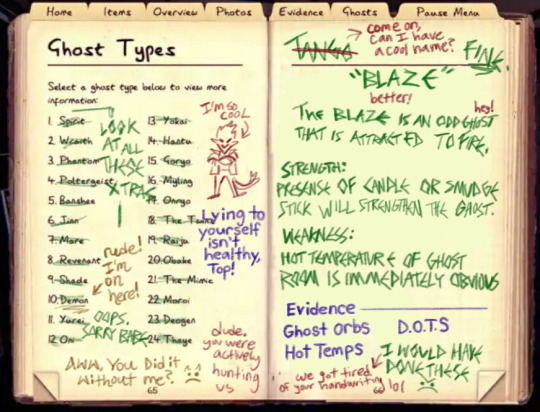 Home Items Overview Photos Evidence Ghosts Pause Menu
Ghost Types
Select a ghost type below to view more
information:
1. Spirit
2. Wraith
3. Phantom
4. Poltergeist
5. Banshee
6. Jinn
7. Mare
8. Revenant
9. Shade
10. Demon
11. Yurei
12. Oni
13. Yokai
14. Hantu
15. Goryo
16. Myling
17. Onryo
18. The Twins
19. Raiju
20. Obake
21. The Mimic
22. Moroi
23. Deogen
24. Thaye
LOOK
AT ALL
THESE
XTRAS
!
I'M SO
COOL
Lying to
yourself
isn't
healthy,
Top!
rude!
I'm
on
here!
OOPS.
SORRY BABE
AWW, You Did it
Without me?
dude,
you were
actively
hunting
us
65
TANGO
come on,
can I have
a cool name?
FINE.
"BLAZE"
better!
hey!
THE BLAZE IS AN ODD GHOST
THAT IS ATTRACTED TO FIRE.
STRENGTH:
PRESENSE OF CANDLE OR SMUDGE
STICK WILL STRENGTHEN THE GHOST.
WEAKNESS:
HOT TEMPERATURE OF GHOST
ROOM IS IMMEDIATELY OBVIOUS
Evidence
Ghost Orbs D.O.T.S
Hot Temps
I WOULD HAVE
DONE THESE
we got tired
of your handwriting
lol
66